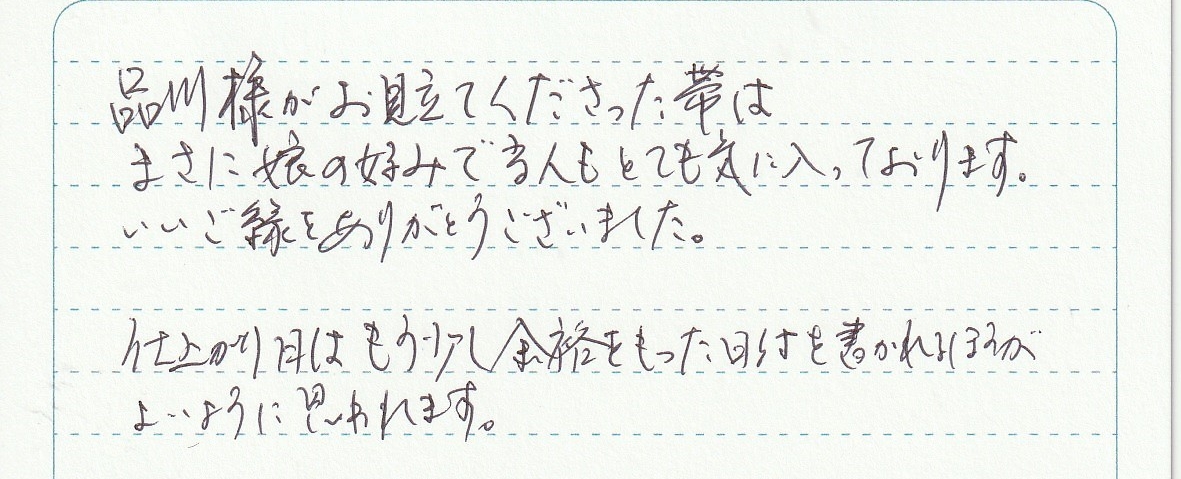 品川様がお見立てくださった帯は
まさに娘の好みで当人もとても気に入っております。
いいご縁をありがとうございました。
仕上がり日はもう少し余裕をもった日付を書かれるほうが
よいように思われます。